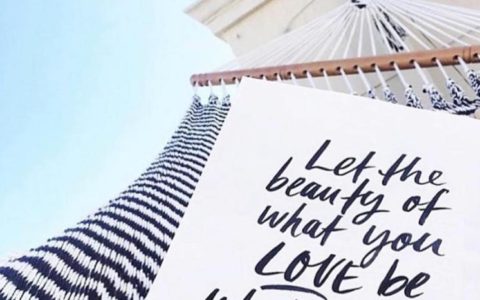 Let the
beauty of
what you
LOVE be